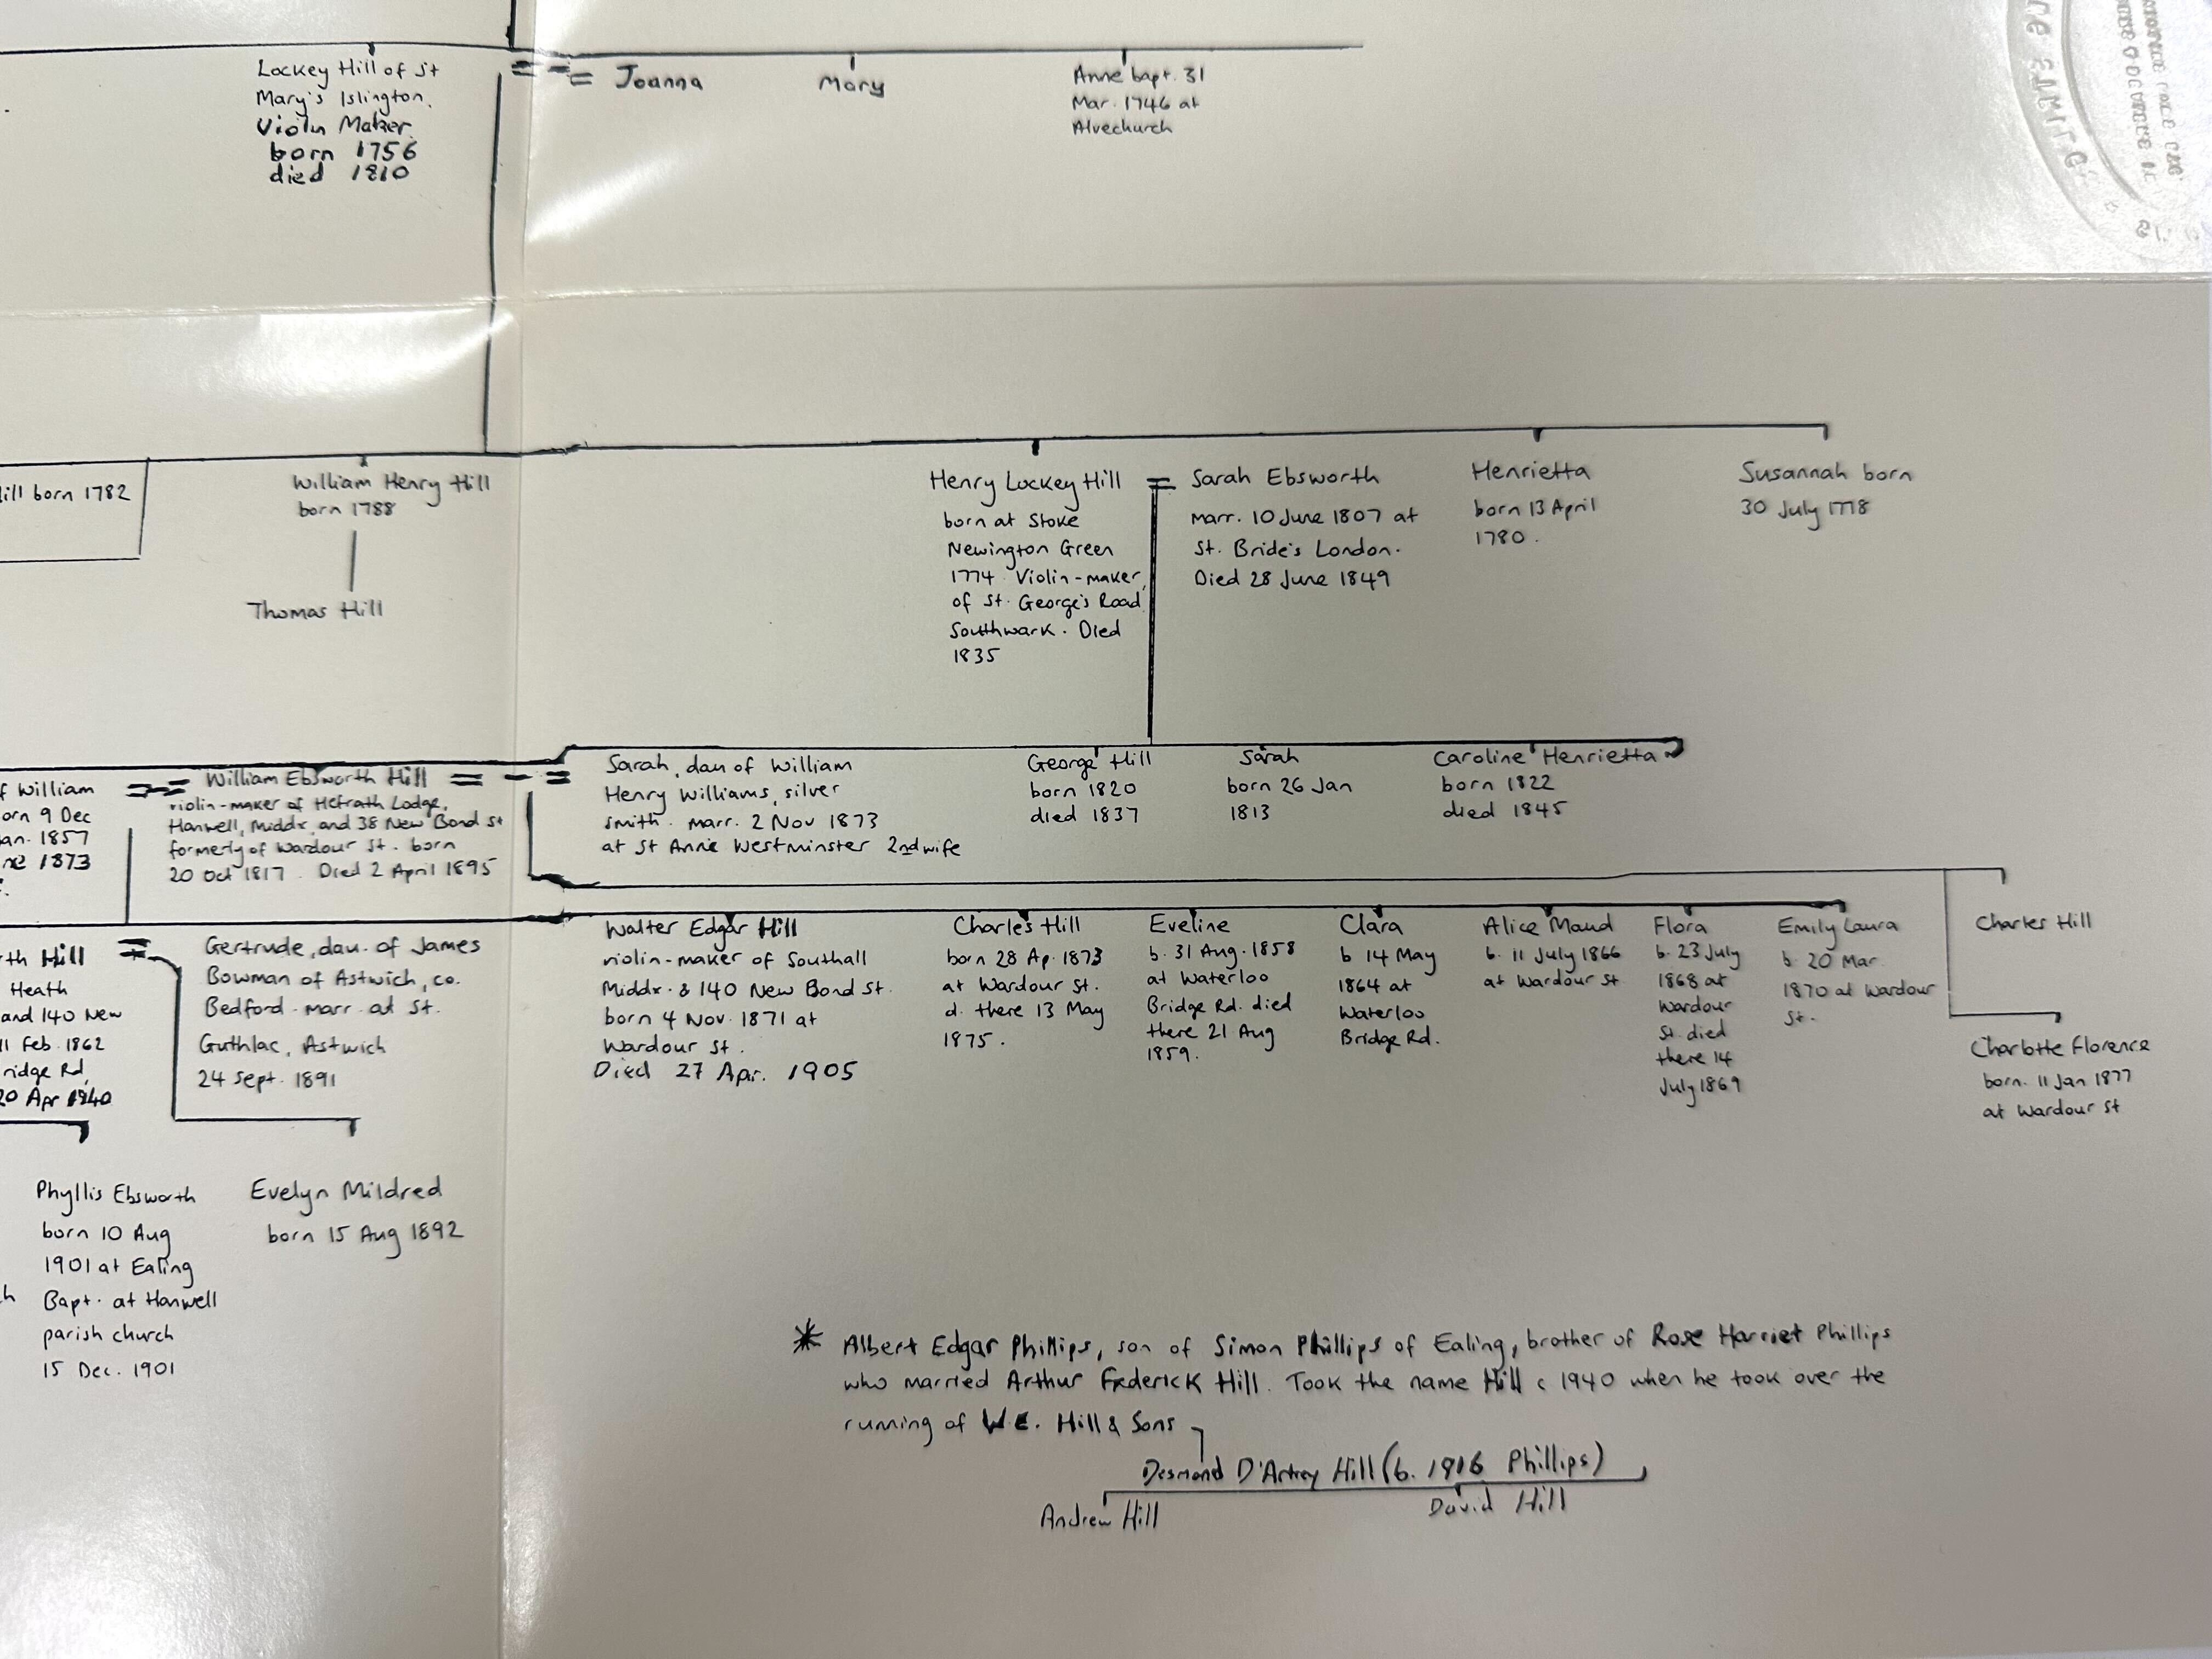 Lockey Hill of St
Mary's Islington.
Violin Maker
born 1756
died 1810
Joanna
Mary
Anne bapt. 31
Mar. 1746 at
Alvechurch
ill born 1782
William Henry Hill
born 1788
Thomas Hill
Henry Lockey Hill
born at Stoke
Newington Green
1774 Violin-maker,
of St. George's Road
Southwark. Died
1835
Sarah Ebsworth
marr. 10 June 1807 at
St. Bride's London.
Died 28 June 1849
Henrietta
born 13 April
1780.
Susannah born
30 July 1778
f William
orn 9 Dec
an. 1857
ne 1873
William Ebsworth Hill
violin-maker of Hefrath Lodge,
Hanwell, Middx, and 38 New Bond St
formerly of Wardour St. born
20 Oct 1817. Died 2 April 1895
Sarah, dau of William
Henry Williams, silver
smith. marr. 2 Nov 1873
at St Anne Westminster 2nd wife
George Hill
born 1820
died 1837
Sarah
born 26 Jan
1813
Caroline Henrietta
born 1822
died 1845
th Hill
Heath
and 140 New
11 Feb. 1862
ridge Rd
20 Apr 1940
Gertrude, dau. of James
Bowman of Astwich, co.
Bedford. marr. at St.
Guthlac, Astwich
24 Sept. 1891
Walter Edgar Hill
violin-maker of Southall
Middx. & 140 New Bond St.
born 4 Nov. 1871 at
Wardour St.
Died 27 Apr. 1905
Charles Hill
born 28 Ap. 1873
at Wardour St.
d. there 13 May
1875.
Eveline
b. 31 Aug. 1858
at Waterloo
Bridge Rd. died
there 21 Aug
1859.
Clara
b 14 May
1864 at
Waterloo
Bridge Rd.
Alice Maud
b. 11 July 1866
at Wardour St
Flora
b. 23 July
1868 at
Wardour
St. died
there 14
July 1869
Emily Laura
b. 20 Mar.
1870 at Wardour
St.
Charles Hill
Charlotte Florence
born. 11 Jan 1877
at Wardour St
Phyllis Ebsworth
born 10 Aug
1901 at Ealing
Bapt. at Hanwell
parish church
15 Dec. 1901
Evelyn Mildred
born 15 Aug 1892
h
* Albert Edgar Phillips, son of Simon Phillips of Ealing, brother of Rose Harriet Phillips
who married Arthur Frederick Hill. Took the name Hill c 1940 when he took over the
running of W.E. Hill & Sons
Desmond D'Artrey Hill (b. 1916 Phillips)
Andrew Hill
David Hill